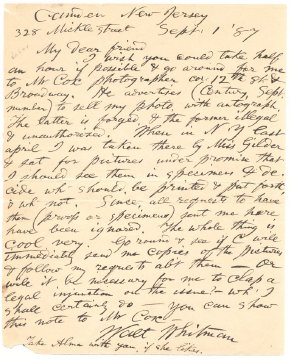 Camden New Jersey
328 Mickle street Sept. 1 '87
My dear friend
I wish you could take half
an hour if possible & go around for me
to Mr Cox photographer cor: 12th St. &
Broadway. He advertises (Century, Sept.
number) to sell my photo, with autograph
The latter is forged, & the former illegal
& unauthorized. When in N Y last
April I was taken there by Miss Gilder
& sat for pictures under promise that
I should see them in specimens & de-
cide wh' should be printed & put forth
& wh' not. Since, all requests to have
them (proofs or specimens) sent me here
have been ignored. The whole thing is
cool very. Go round & see if C will
immediately send me copies of the pictures
& follow my requests ab't them — Or
will it be necessary for me to clap a
legal injunction on the issue – wh' I
shall certainly do — You can show
this note to Mr Cox
Walt Whitman
Take Alma with you, if she likes.